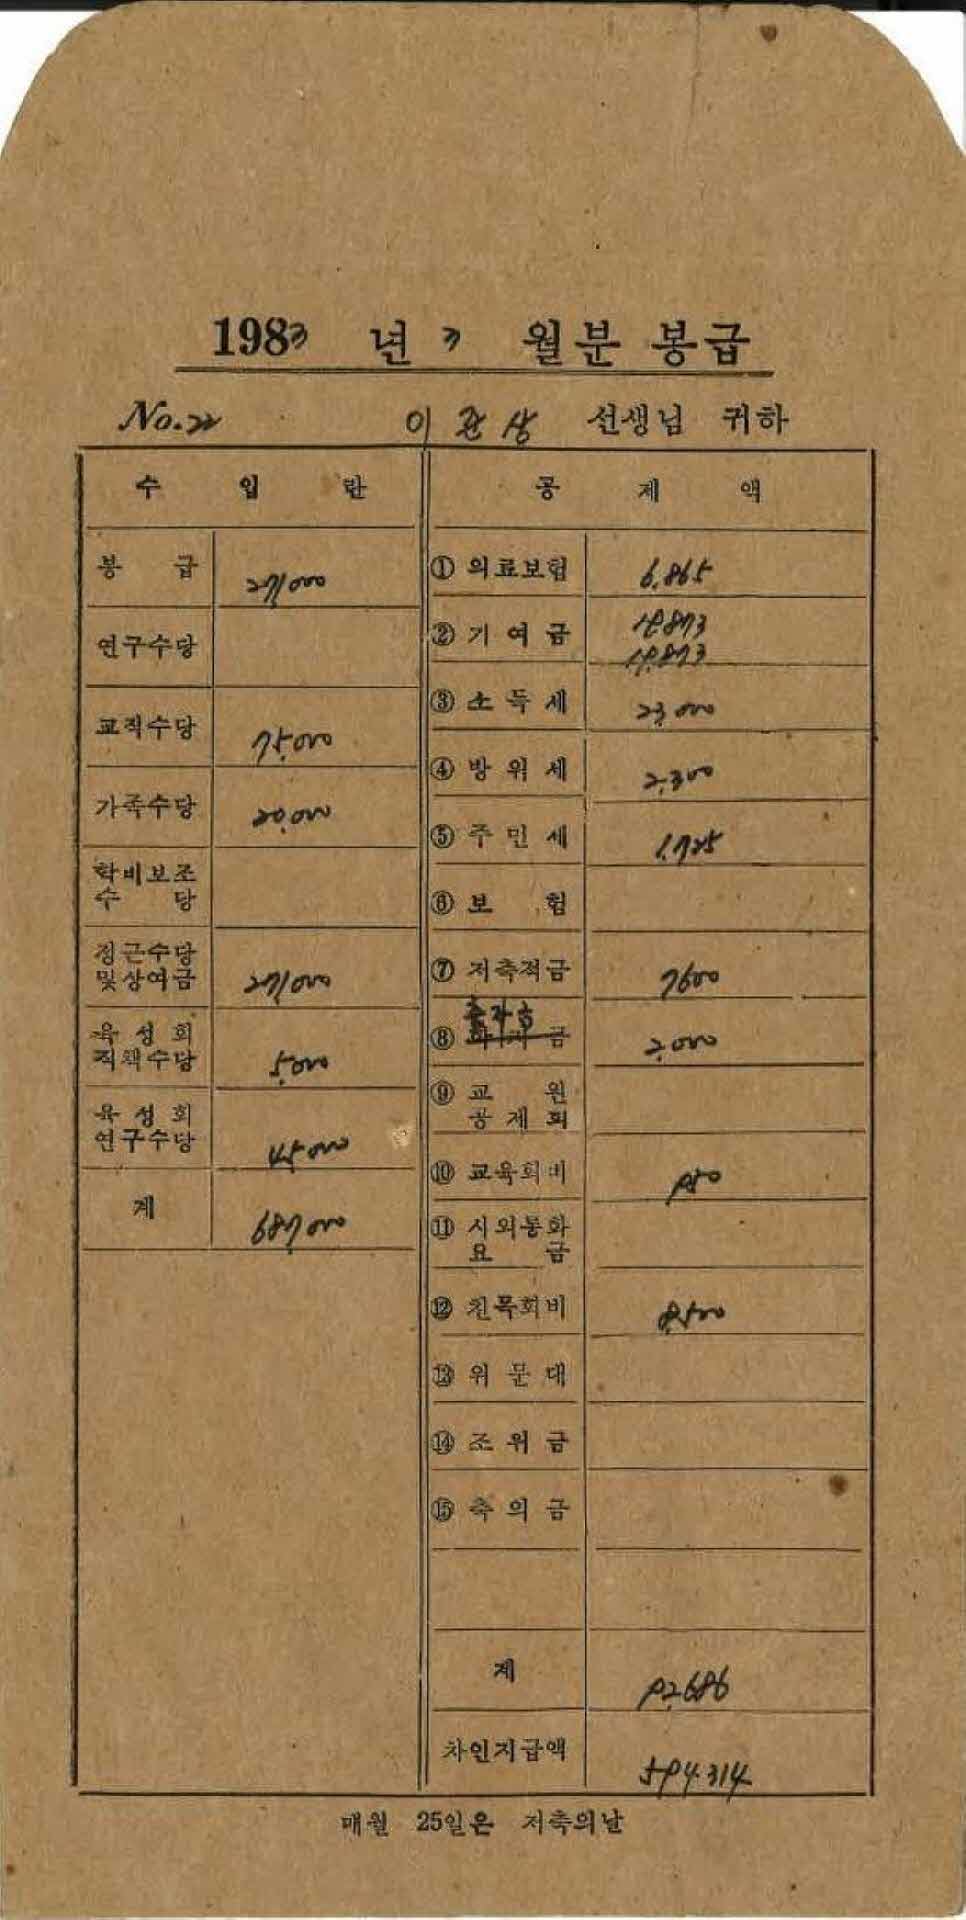 1983 년 3 월분 봉급
No.22 이관상 선생님 귀하
수 입 란
봉 급 271,000
연구수당
교직수당 75,000
가족수당 20,000
학비보조
수 당
정근수당
및상여금 271,000
육성회
직책수당 5,000
육성회
연구수당 45,000
계 687,000
공 제 액
① 의료보험 6,865
② 기여금 19,873
19,873
③ 소득세 23,000
④ 방위세 2,300
⑤ 주민세 1,725
⑥ 보 험
⑦ 저축적금 7600
출자금
⑧ 금 2,000
⑨ 교 원
공제회
⑩ 교육회비 950
⑪ 시외통화
요 금
⑫ 친목회비 8,500
⑬ 위문대
⑭ 조위금
⑮ 축의금
계 92,686
차인지급액 594,314
매월 25일은 저축의날